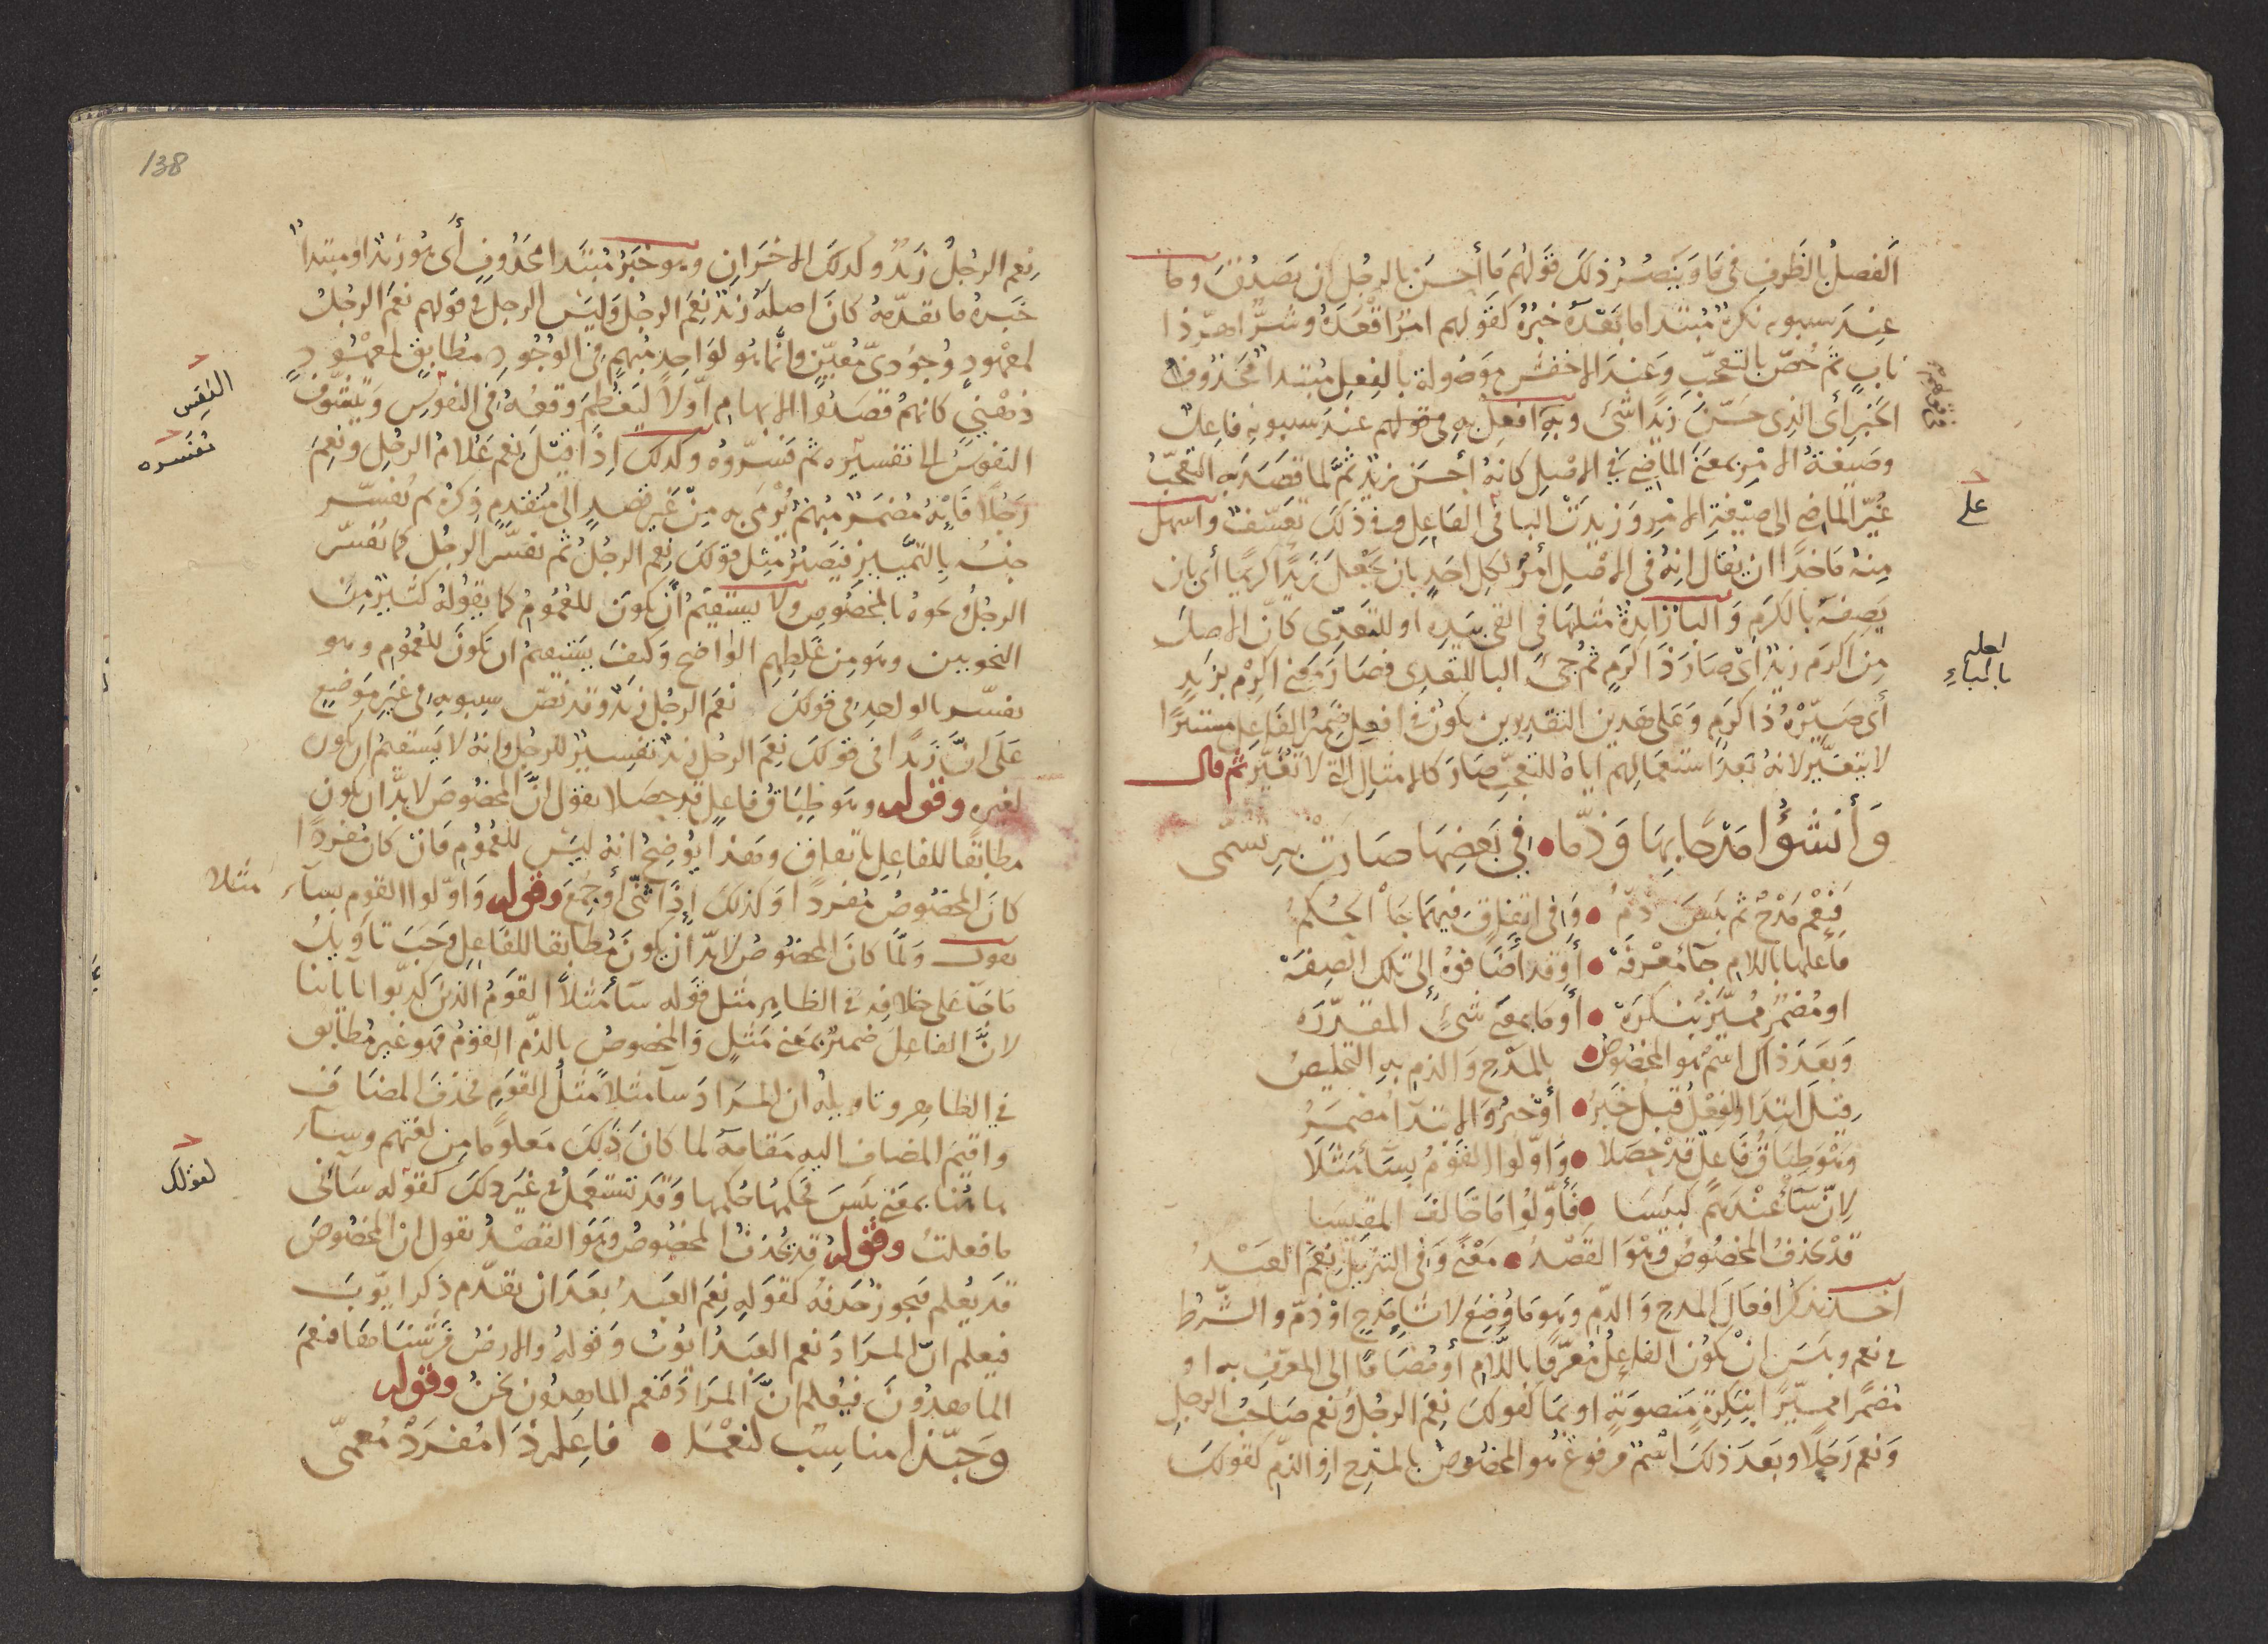 الفصل بالظرف في ما وينصر ذلك قولهم ما أحسن بالرجل ان يصدق وما
عند سيبويه نكرة مبتدا ما بعده خبره كقولهم امرا قعده وشر اهر ذا
ناب ثم خص بالتعجب وعند الاخفش موصولة بالفعل مبتدا محذوف
الخبر أي الذي حسن زيدا شئ وبه افعل به في قولهم عند سيبويه فاعل
وصيغة الامر بمعنى الماضي في الاصل كانه أحسن زيد ثم لما قصد به التعجب
غير الماضي الى صيغة الامر وزيدت البا في الفاعل وفي ذلك تعسف واسهل
منه ماخذا ان يقال انه في الاصل أمر لكل احد بان يجعل زيدا كريما أي بان
يصفه بالكرم والبا زايدة مثلها في القى بيده او للتعدي كان الاصل
من اكرم زيد اي صار ذا كرم ثم جئ البا للتعدي فصار معنى اكرم بزيد
أي صيره ذا كرم وعلى هذين التقديرين يكون في افعل ضمير الفاعل مستترا
لا يتغير لانه بعد استعمالهم اياه للتعجب صار كالامثال التي لا تغير ثم قال
وأنشؤا مدحا بها وذما • في بعضها صارت به تسمى
فنعم مدح ثم بئس ذم • وفي اتفاق فيهما جا الحكم
فاعلها باللام جآ معرفه • أو قد أضافوه إلى تلك الصفه
او مضمر مميز بنكره • أو ما بمعنى شئ المقدره
وبعد ذاك اسم هو المخصوص • بالمدح والذم به التخليص
قيل ابتدا والفعل قبل خبر • أو خبر والابتدآ مضمر
وهو طباق فاعل قد حصلا • وأولوا القوم بسآ مثلا
لان سآ عندهم كبئسا • فأولوا ما خالف المقيسا
قد يحذف المخصوص وهو القصد • معنى وفي التنزيل نعم العبد
اخذ يذكر افعال المدح والذم وهو ما وضع لانشا مدح او ذم والشرط
في نعم وبئس ان يكون الفاعل معرفا باللام أو مضافا الى المعرف به او
مضمرا مميزا بنكرة منصوبة او بما كقولك نعم الرجل ونعم صاحب الرجل
ونعم رجلا وبعد ذلك اسم مرفوع هو المخصوص بالمدح او الذم كقولك
على
بالباء
138
نعم الرجل زيد وكذلك الاخران وهو خبر مبتدا محذوف أي هو زيد او مبتدا
خبره ما تقدمه كان اصله زيد نعم الرجل وليس الرجل في قولهم نعم الرجل
لمعهود وجودي معين وانما هو لواحد مبهم في الوجود مطابق لمعهود
ذهني كانهم قصدوا الابهام اولا ليعظم وقعه في النفوس وتتشوف
النفوس الى تفسيره ثم فسروه وكذلك اذا قيل نعم غلام الرجل ونعم
رجلا فانه مضمر مبهم يؤمى به من غير قصد الى متقدم ذكره ثم تفسر
جنسه بالتمييز فيصير مثل قولك نعم الرجل ثم تفسر الرجل كما تفسر
الرجل ونحوه بالمخصوص ولا يستقيم ان يكون للعموم كما يقوله كثير من
النحويين وهو من غلطهم الواضح وكيف يستقيم ان يكون للعموم وهو
يفسر بالواحد في قولك نعم الرجل زيد وقد نص سيبويه في غير موضع
على ان زيدا في قولك نعم الرجل زيد تفسير للرجل وانه لا يستقيم ان يكون
لغيره وقوله وهو طباق فاعل قد حصلا يقول ان المخصوص لا بد ان يكون
مطابقا للفاعل باتفاق وهذا يوضح انه ليس للعموم فان كان مفردا
كان المخصوص مفردا وكذلك إذا ثنى أو جمع وقوله وأولوا القوم بسآء مثلا
يقول ولما كان المخصوص لا بد ان يكون مطابقا للفاعل وجب تاويل
ما جآ على خلافه في الظاهر مثل قوله سآ مثلا القوم الذين كذبوا باياتنا
لان الفاعل ضمير بمعنى مثل والمخصوص بالذم القوم فهو غير مطابق
في الظاهر وتاويله ان المراد سآ مثلا مثل القوم فحذف المضاف
واقيم المضاف اليه مقامه لما كان ذلك معلوما من لغتهم وسآء
هاهنا بمعنى بئس فحكمها حكمها وقد تستعمل في غير ذلك كقوله سآنى
ما فعلت وقوله قد يحذف المخصوص وهو القصد يقول ان المخصوص
قد يعلم فيجوز حذفه كقوله نعم العبد بعد ان تقدم ذكر ايوب
فيعلم ان المراد نعم العبد ايوب وقوله والارض فرشناها فنعم
الماهدون فيعلم ان المراد فنعم الماهدون نحن وقوله
وحبذا مناسب لنعما • فاعلم ذا مفرد معمى
النفس
تفسره
كقولك